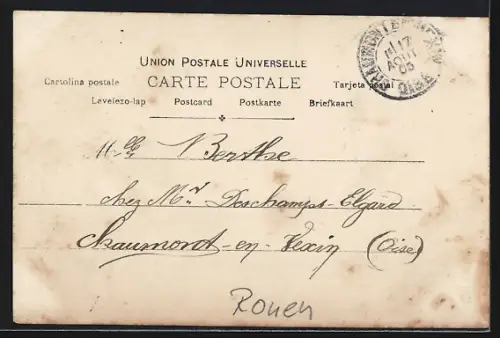 UNION POSTALE UNIVERSELLE
CARTE POSTALE
Cartolina postale Tarjeta postal
Levelezo-lap Postcard Postkarte Briefkaart
CHAUMONT-EN-VEXIN
17
AOUT
05
OISE
Mlle Berthe
chez Mr Deschamps-Elgard
Chaumont-en-Vexin (Oise)
Rouen